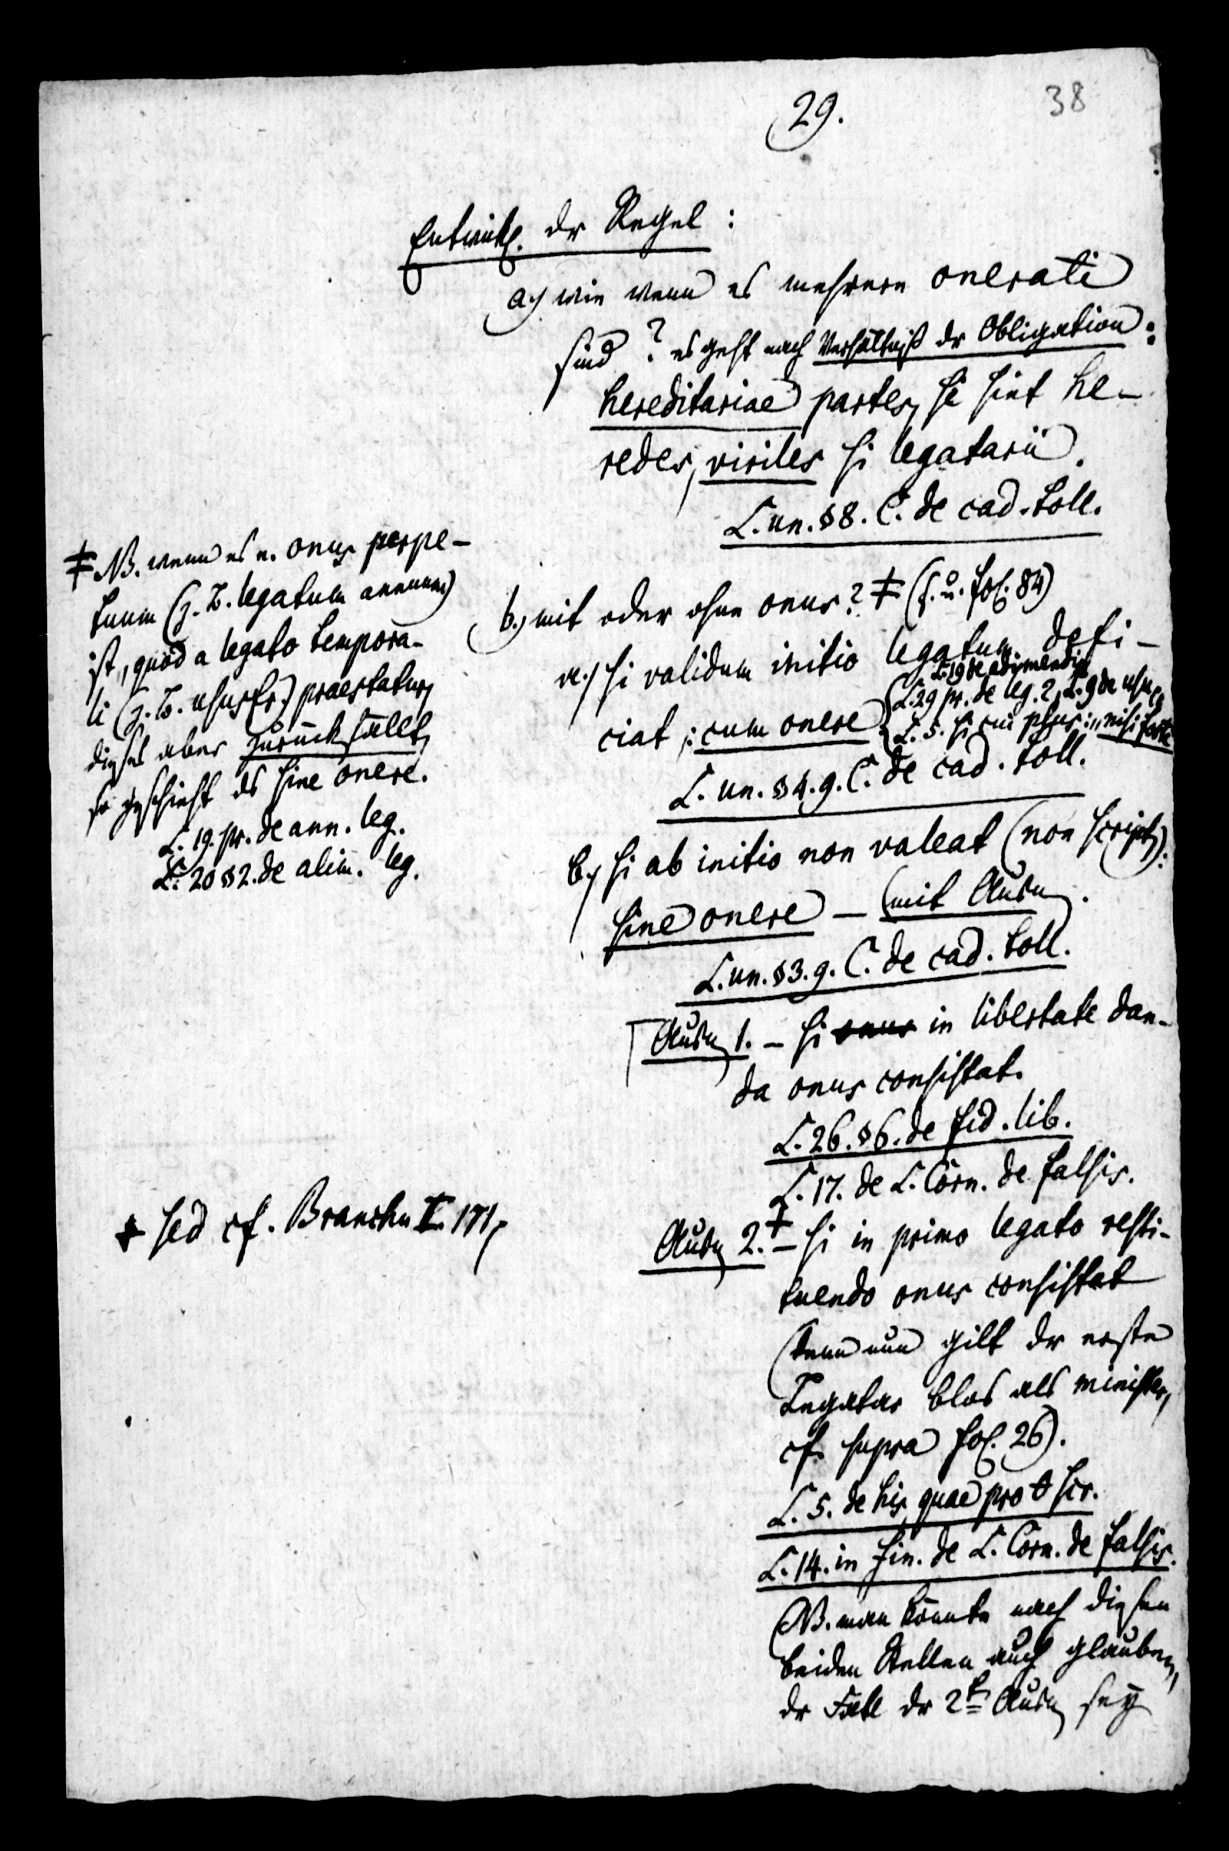 29.
38
Entwickl. dr Regel:
a.) wie wenn es mehrere onerati
sind? es geht nach Verhältniß dr Obligation:
hereditariae partes, si sint he-
redes, viriles si legatarii.
L. un. §8. C. de cad. toll.
b.) mit oder ohne onus? ‡ (s. u. fol. 84)
α.) si validum initio legatum defi-
ciat: cum onere
L. 19 de adimendis
L. 29 pr. de leg. 2, L. 9 de usuf.
L. 5. si cui plus: „nisi forte
L. un. §4. 9. C. de cad. toll.
β.) si ab initio non valeat (non script.):
sine onere – mit Ausn.
L. un. §3. 9. C. de cad. toll.
Ausn 1. – si onus in libertate dan-
da onus consistat.
L. 26. §6. de fid. lib.
L. 17. de L. Corn. de falsis.
Ausn 2. ‡ – si in primo legato resti-
tuendo onus consistat
(denn nun gilt dr erste
Legatar blos als minister,
cf. supra fol. 26).
L. 5. de his quae pro  scr.
L. 14. in fin. de L. Corn. de falsis.
(NB. man könnte nach diesen
beiden Stellen auch glauben,
dr Fall dr 2t Ausn sey
‡ NB. wenn es e. onus perpe-
tuum (z. B. legatum annuum)
ist, quod a legato tempora-
li (z. B. ususfr.) praestatur,
dieses aber zurückfällt,
so geschieht ds sine onere.
L. 19. pr. de ann. leg.
L. 20 §2. de alim. leg.
‡ sed cf. Branchu II. 171,